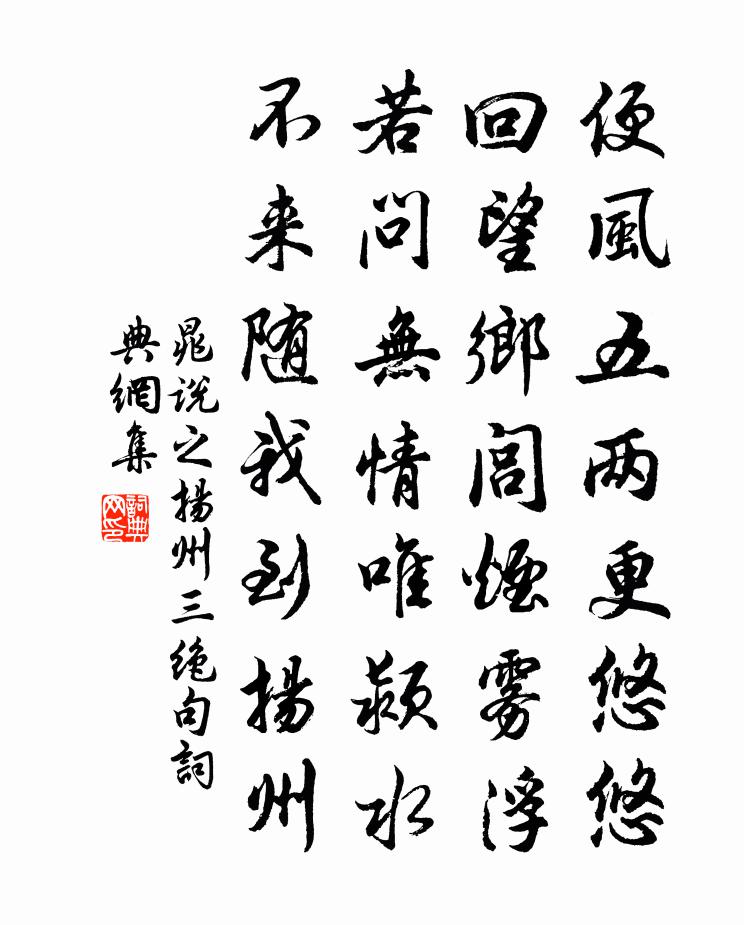 便風五两更悠悠
回望鄉閭煙雾浮
若問無情唯潁水
不来随我到揚州
晁說之揚州三绝句詞
典網集
詞典网印